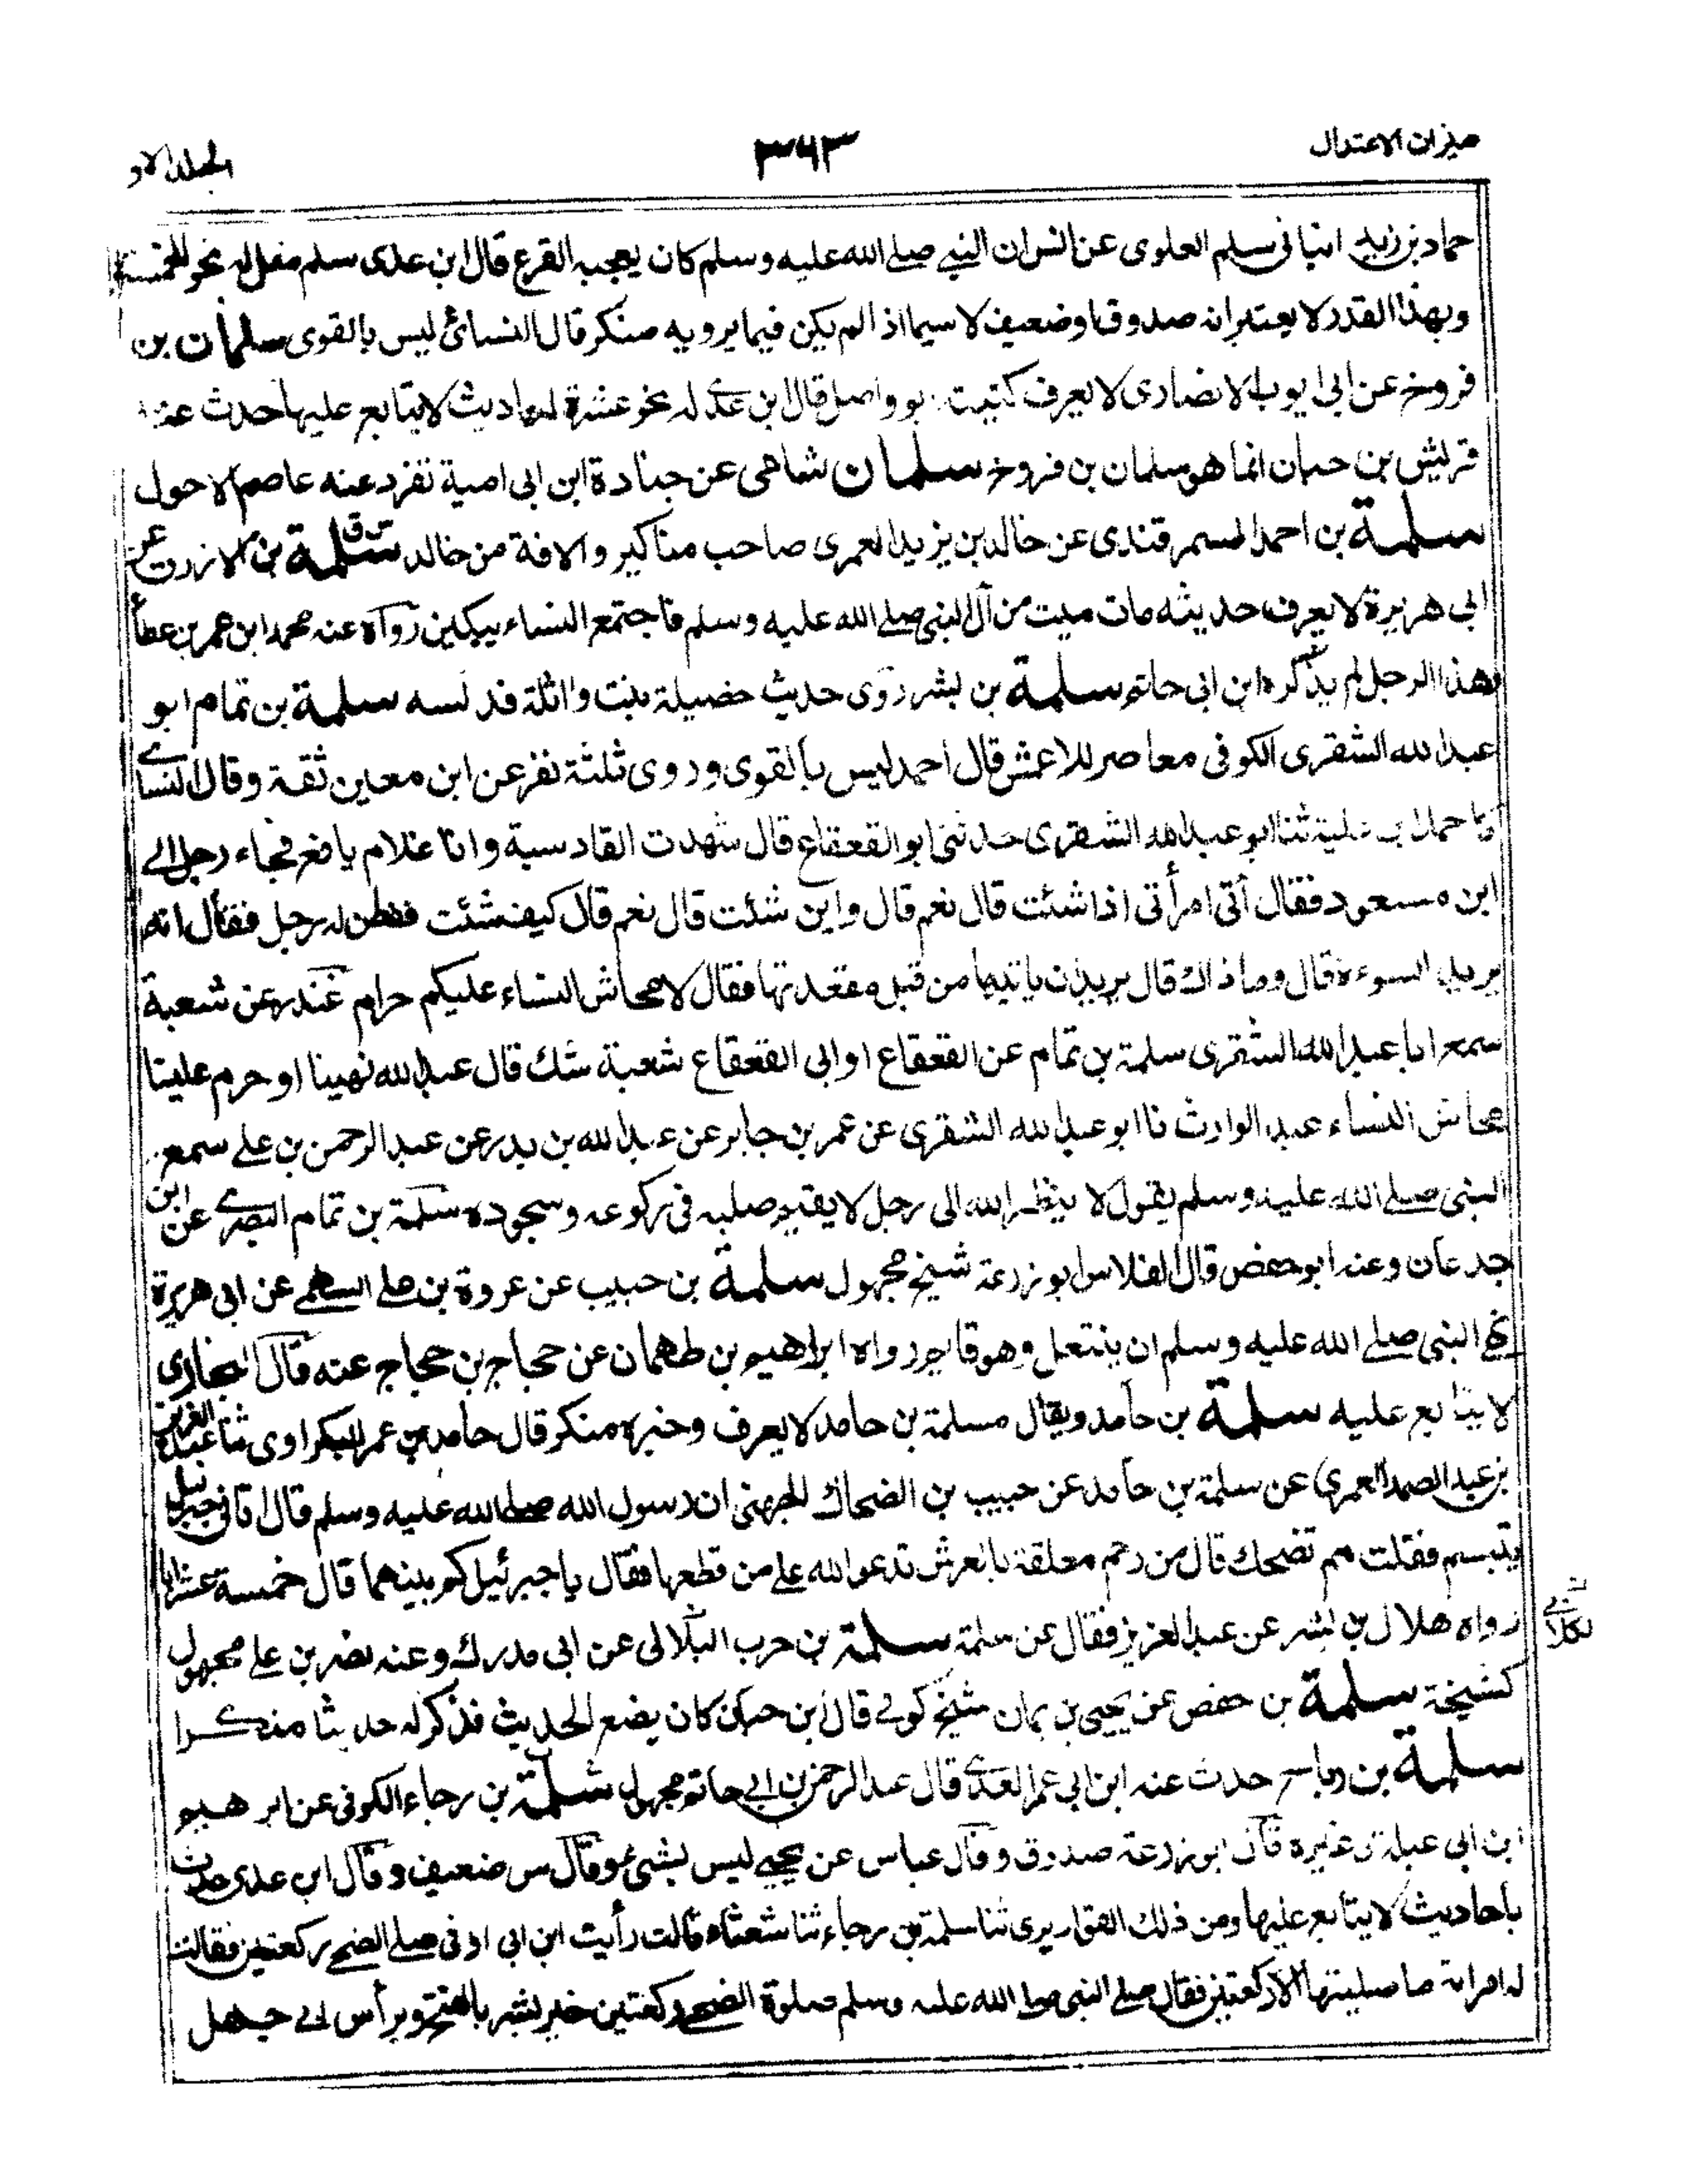 ميزان الاعتدال
٣٦٣
المجلد الاو
حماد بن زيد انبانى سلم العلوى عن انس ان النبى صلے الله عليه وسلم كان يعجبه القرع قال ابن عدى سلم مقل له نحو الخمسة
وبهذا القدر لا يعتبر انه صدوق او ضعيف لا سيما اذا لم يكن فيما يرويه منكر قال النسائى ليس بالقوى سلمان بن
فروخ عن ابى ايوب الانصارى لا يعرف كنيت بو واصل قال ابن عدے له نحو عشرة احاديث لا يتابع عليها حدث عنه
قريش بن حبان انما هو سلمان بن فروخ سلمان شاهى عن جنادة ابن ابى امية تفرد عنه عاصم الاحول
سلمة بن احمد السمرقندى عن خالد بن يزيد العمرى صاحب مناكير والافة من خالد س ق سلمة بن الازرق عن
ابى هريرة لا يعرف حديثه مات ميت من آل النبى صلے الله عليه وسلم فاجتمع النساء يبكين رواه عنه محمد ابن عمر بن عطأ
وهذا الرجل لم يذكره ابن ابى حاتم سلمة بن بشر روى حديث خصيلة بنت واثلة فدلسه سلمة بن تمام ابو
عبد الله الشقرى الكوفى معاصر للاعمش قال احمد ليس بالقوى وروى ثلثة نفر عن ابن معين ثقة وقال النساے
نا حماد بن علية ثنا ابو عبد الله الشقرى حدثنى ابو القعقاع قال شهدت القادسية وانا غلام يافع فجاء رجل الے
ابن مسعود فقال آتى امرأتى اذا شئت قال نعم قال واين شئت قال نعم قال كيف شئت ففطن له رجل فقال انه
يريد السوءة قال وما ذاك قال يريد ان ياتيها من قبل مقعدتها فقال لا محاش النساء عليكم حرام غندر عن شعبة
سمع ابا عبد الله الشقرى سلمة بن تمام عن القعقاع او ابى القعقاع شعبة شك قال عبد الله نهينا او حرم علينا
محاش النساء عبد الوارث نا ابو عبد الله الشقرى عن عمر بن جابر عن عبد الله بن بدر عن عبد الرحمن بن على سمع
النبى صلے الله عليه وسلم يقول لا ينظر الله الى رجل لا يقيم صلبه فى ركوعه وسجوده سلمة بن تمام البصرے عن ابن
جدعان وعنه ابو حفص قال الفلاس ابو زرعة شيخ مجهول سلمة بن حبيب عن عروة بن على السهمے عن ابى هريرة
نهى النبى صلے الله عليه وسلم ان ينتعل وهو قائم رواه ابراهيم بن طهمان عن حجاج بن حجاج عنه قال البخارى
لا يتابع عليه سلمة بن حامد ويقال مسلمة بن حامد لا يعرف وخبره منكر قال حامد بن عمر البكراوى ثنا عبد العزيز
بن عبد الصمد العمرى عن سلمة بن حامد عن حبيب بن الضحاك الجهنى ان رسول الله صلى الله عليه وسلم قال اتانى جبرئيل
يتبسم فقلت مم تضحك قال من رحم معلقة بالعرش تدعو الله على من قطعها فقال يا جبرئيل كم بينهما قال خمسة عشر ابا
رواه هلال بن بشر عن عبد العزيز فقال عن سلمة سلمة بن حرب البلالى عن ابى مدرك وعنه نضر بن على مجهول
كشيخه سلمة بن حفص عن يحيى بن يمان شيخ كوفے قال ابن حبان كان يضع الحديث فذكر له حديثا منكرا
سلمة بن حدث عنه ابن ابى عمر العدنے قال عبد الرحمن بن ابى حاتم مجهول سلمة بن رجاء الكوفى عن ابرهيم
ابن ابى عبلة وغيره قال ابو زرعة صدوق وقال عباس عن يحيے ليس بشئ وقال س ضعيف وقال ابن عدى حدث
باحاديث لا يتابع عليها ومن ذلك القواريرى ثنا سلمة بن رجاء ثنا شعثاء قالت رأيت ابن ابى اوفى صلے الضحے ركعتين فقالت
له امرأته ما صليتها الا ركعتين فقال صلے النبى صلے الله عليه وسلم صلوة الضحے ركعتين حين بشر بالفتح وبرأس ابے جهل